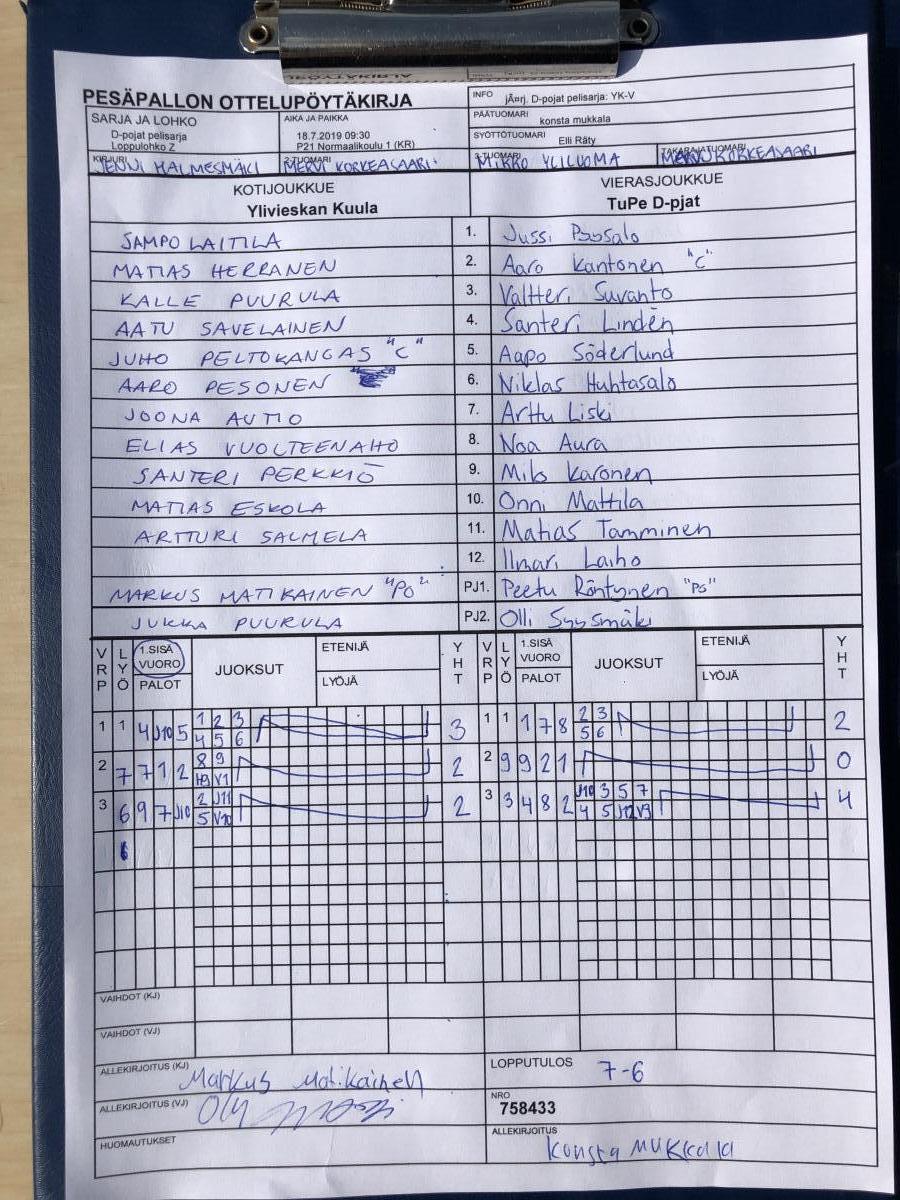 PESÄPALLON OTTELUPÖYTÄKIRJA
INFO jÃ¤rj. D-pojat pelisarja: YK-V
SARJA JA LOHKO
D-pojat pelisarja
Loppulohko Z
AIKA JA PAIKKA
18.7.2019 09:30
P21 Normaalikoulu 1 (KR)
PÄÄTUOMARI konsta mukkala
SYÖTTÖTUOMARI Elli Räty
KIRJURI JENNI HALMESMÄKI
2-TUOMARI MERVI KORKEASAARI
3-TUOMARI MIKKO YLILUOMA
TAKARAJATUOMARI MERVI KORKEASAARI
KOTIJOUKKUE
Ylivieskan Kuula
VIERASJOUKKUE
TuPe D-pjat
SAMPO LAITILA 1. Jussi Pousalo
MATIAS HERRANEN 2. Aaro Kantonen "C"
KALLE PUURULA 3. Valtteri Suvanto
AATU SAVELAINEN 4. Santeri Lindén
JUHO PELTOKANGAS "C" 5. Aapo Söderlund
AARO PESONEN 6. Niklas Huhtasalo
JOONA AUTIO 7. Arttu Liski
ELIAS VUOLTEENAHO 8. Noa Aura
SANTERI PERKKIÖ 9. Milo Karonen
MATIAS ESKOLA 10. Onni Mattila
ARTTURI SALMELA 11. Matias Tamminen
12. Ilmari Laiho
MARKUS MATIKAINEN "PO" PJ1. Peetu Röntynen "PS"
JUKKA PUURULA PJ2. Olli Syysmäki
VRP LYÖ 1.SISÄ VUORO PALOT JUOKSUT ETENIJÄ LYÖJÄ YHT VRP LYÖ 1.SISÄ VUORO PALOT JUOKSUT ETENIJÄ LYÖJÄ YHT
1 1 4 J10 5 1 2 3 3 1 1 1 7 8 2 3 2
4 5 6 5 6
2 7 7 1 2 8 9 2 2 9 9 2 1 0
H9 V1
3 6 9 7 J10 2 J11 2 3 3 4 8 2 J10 3 5 7 4
5 V10 4 5 J12 V3
6
VAIHDOT (KJ)
VAIHDOT (VJ)
ALLEKIRJOITUS (KJ) Markus Matikainen
LOPPUTULOS 7-6
ALLEKIRJOITUS (VJ)
NRO
758433
HUOMAUTUKSET
ALLEKIRJOITUS
Konsta Mukkala